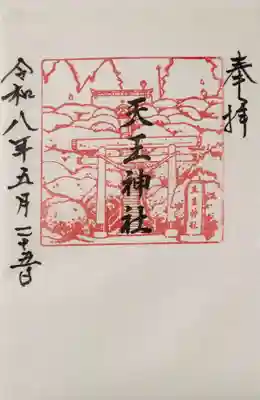 奉拝
天王神社
天王神社
令和八年五月二十五日